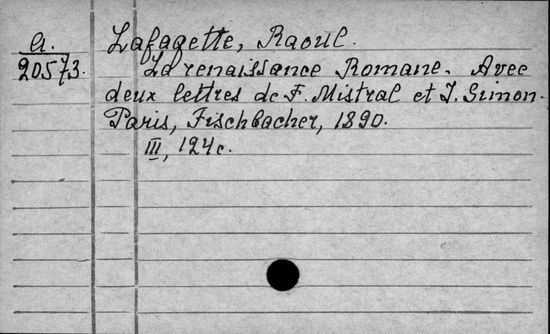 a.
20573.
Lafagette, Raoul.
La renaissance Romane. Avec
deux lettres de F. Mistral et J. Simon.
Paris, Fischbacher, 1890.
III, 124 c.